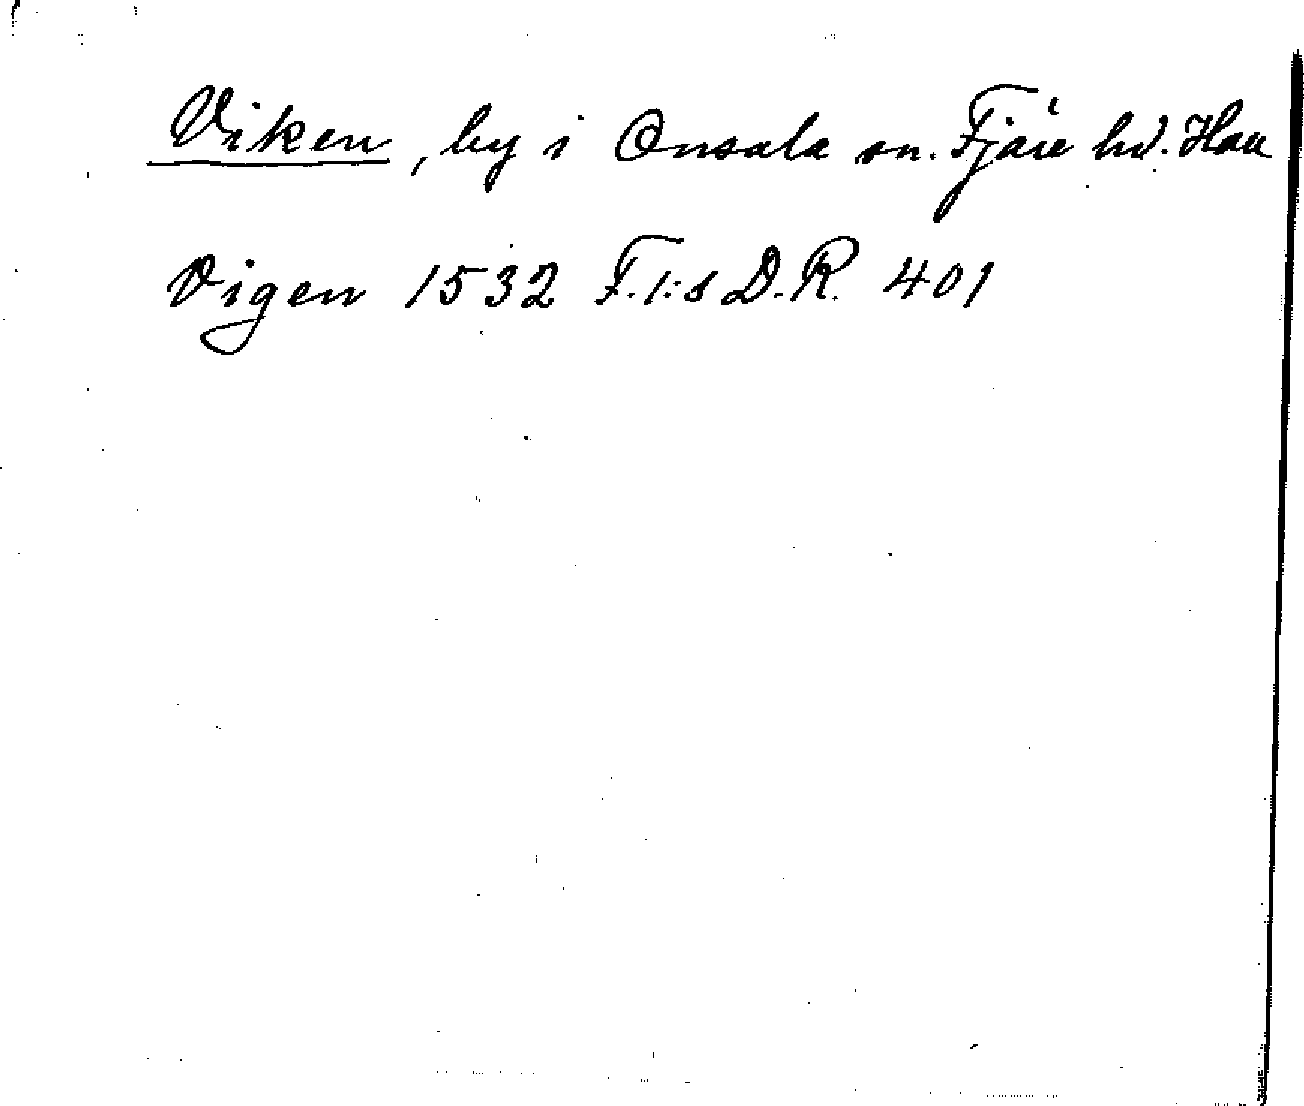 Viken, by i Onsala sn. Fjäre hd. Hall
Vigen 1532 F.1:s D.R. 401